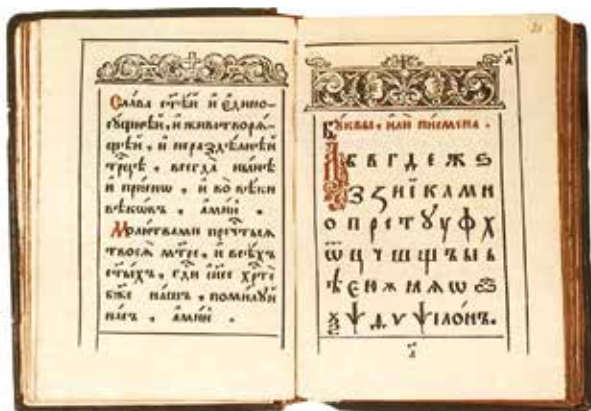 Сла́ва ст҃ѣ́й и҆ є҆дино-
сꙋ́щнѣй, и҆ животворѧ́-
щей, и҆ нераздѣ́лнѣй
трⷪ҇цѣ, всегда̀ нн҃ѣ
и҆ при́снѡ, и҆ во̀ вѣ́ки
вѣкѡ́въ. а҆ми́нь.
Моли́твами пречⷭ҇тыѧ
твоеѧ̀ мт҃ре, и҆ всѣ́хъ
ст҃ы́хъ, гдⷭ҇и і҆и҃се хрⷭ҇тѐ
бж҃е на́шъ, поми́лꙋй
на́съ. а҆ми́нь.
Бꙋ́квы, и҆лѝ пи́смена.
А б в г д е ж ѕ
з ꙁ и ї к л м н
о п р с т у ꙋ ф х
ѿ ц ч ш щ ъ ы ь
ѣ є ю ѫ ѧ ѡ ѽ
ѯ ѱ ѵ ѱілонъ.